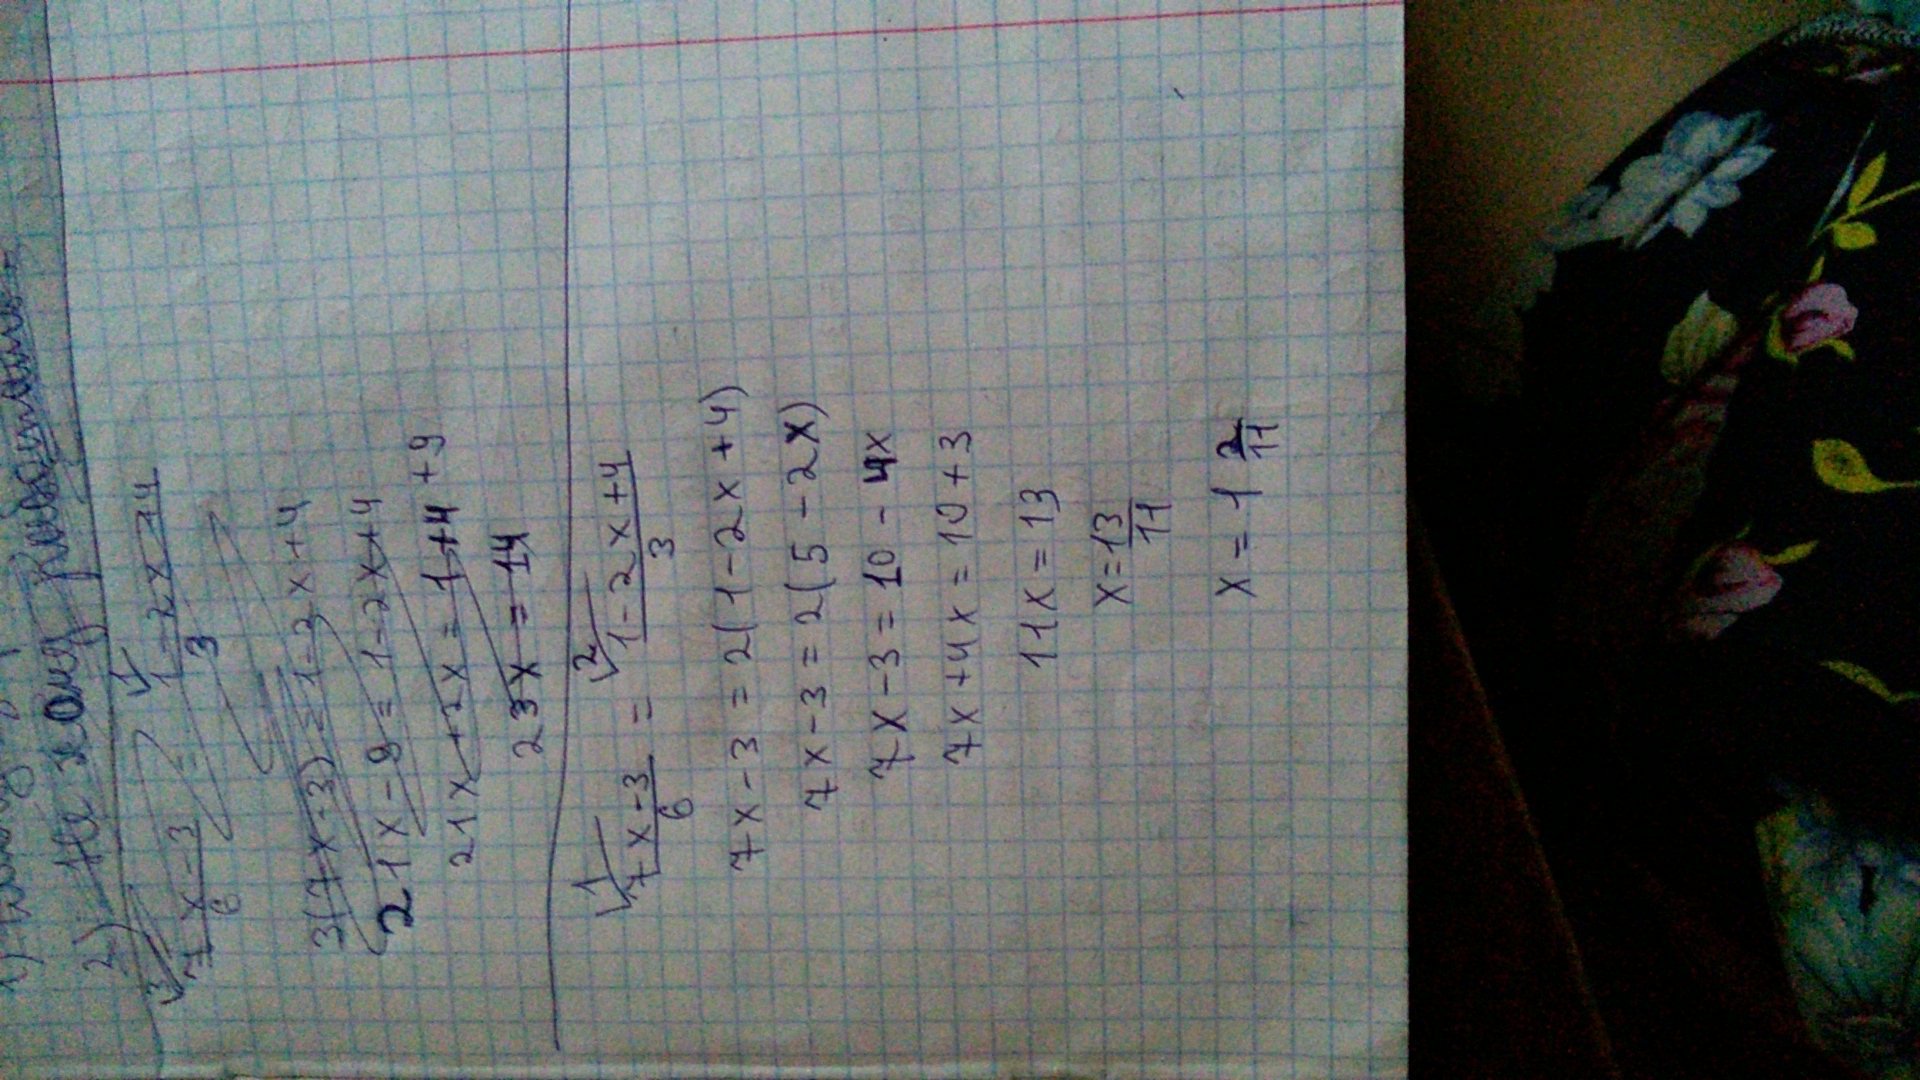 2) Не
3 1
7x-3/6 = 1-2x+4/3
3(7x-3)=1-2x+4
21x-9=1-2x+4
21x+2x=1+4+9
23x=14
1 2
7x-3/6 = 1-2x+4/3
7x-3=2(1-2x+4)
7x-3=2(5-2x)
7x-3=10-4x
7x+4x=10+3
11x=13
x=13/11
x=1 2/11